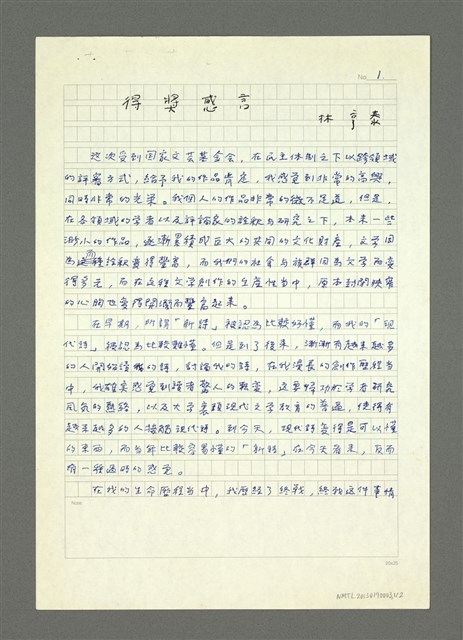 No. 1.
得獎感言
林亨泰
這次受到国家文芸基金会，在民主体制之下以跨領域
的評審方式，給予我的作品肯定，我感受到非常的高興，
同時非常的光栄。我個人的作品非常的微不足道，但是，
在各領域的学者以及評論家的詮釈与研究之下，本来一些
渺小的作品，逐漸累積成巨大的共同的文化財産，文学因
為這種詮釈変得豊富，而我們的社会与族群因為文学而変
得多元，而在這種文学創作的生産性当中，原本封閉狭窄
的心胸也変得開濶而豊富起来。
在早期，所謂「新詩」被認為比較好懂，而我的「現
代詩」被認為比較難懂。但是到了後来，漸漸有越来越多
的人開始讀我的詩，討論我的詩，在我漫長的創作歴程当
中，我確実感受到讀者驚人的転変，這要歸功於学者研究
風気的熱絡，以及大学裏頭現代文学教育的普遍，使得有
越来越多的人接觸現代詩。到今天，現代詩変得是可以懂
的東西，而当年比較容易懂的「新詩」在今天看来，反而
有一種過時的感受。
在我的生命歴程当中，我歴経了終戦，終戦這件事情
NMTL 20150090003,1/2